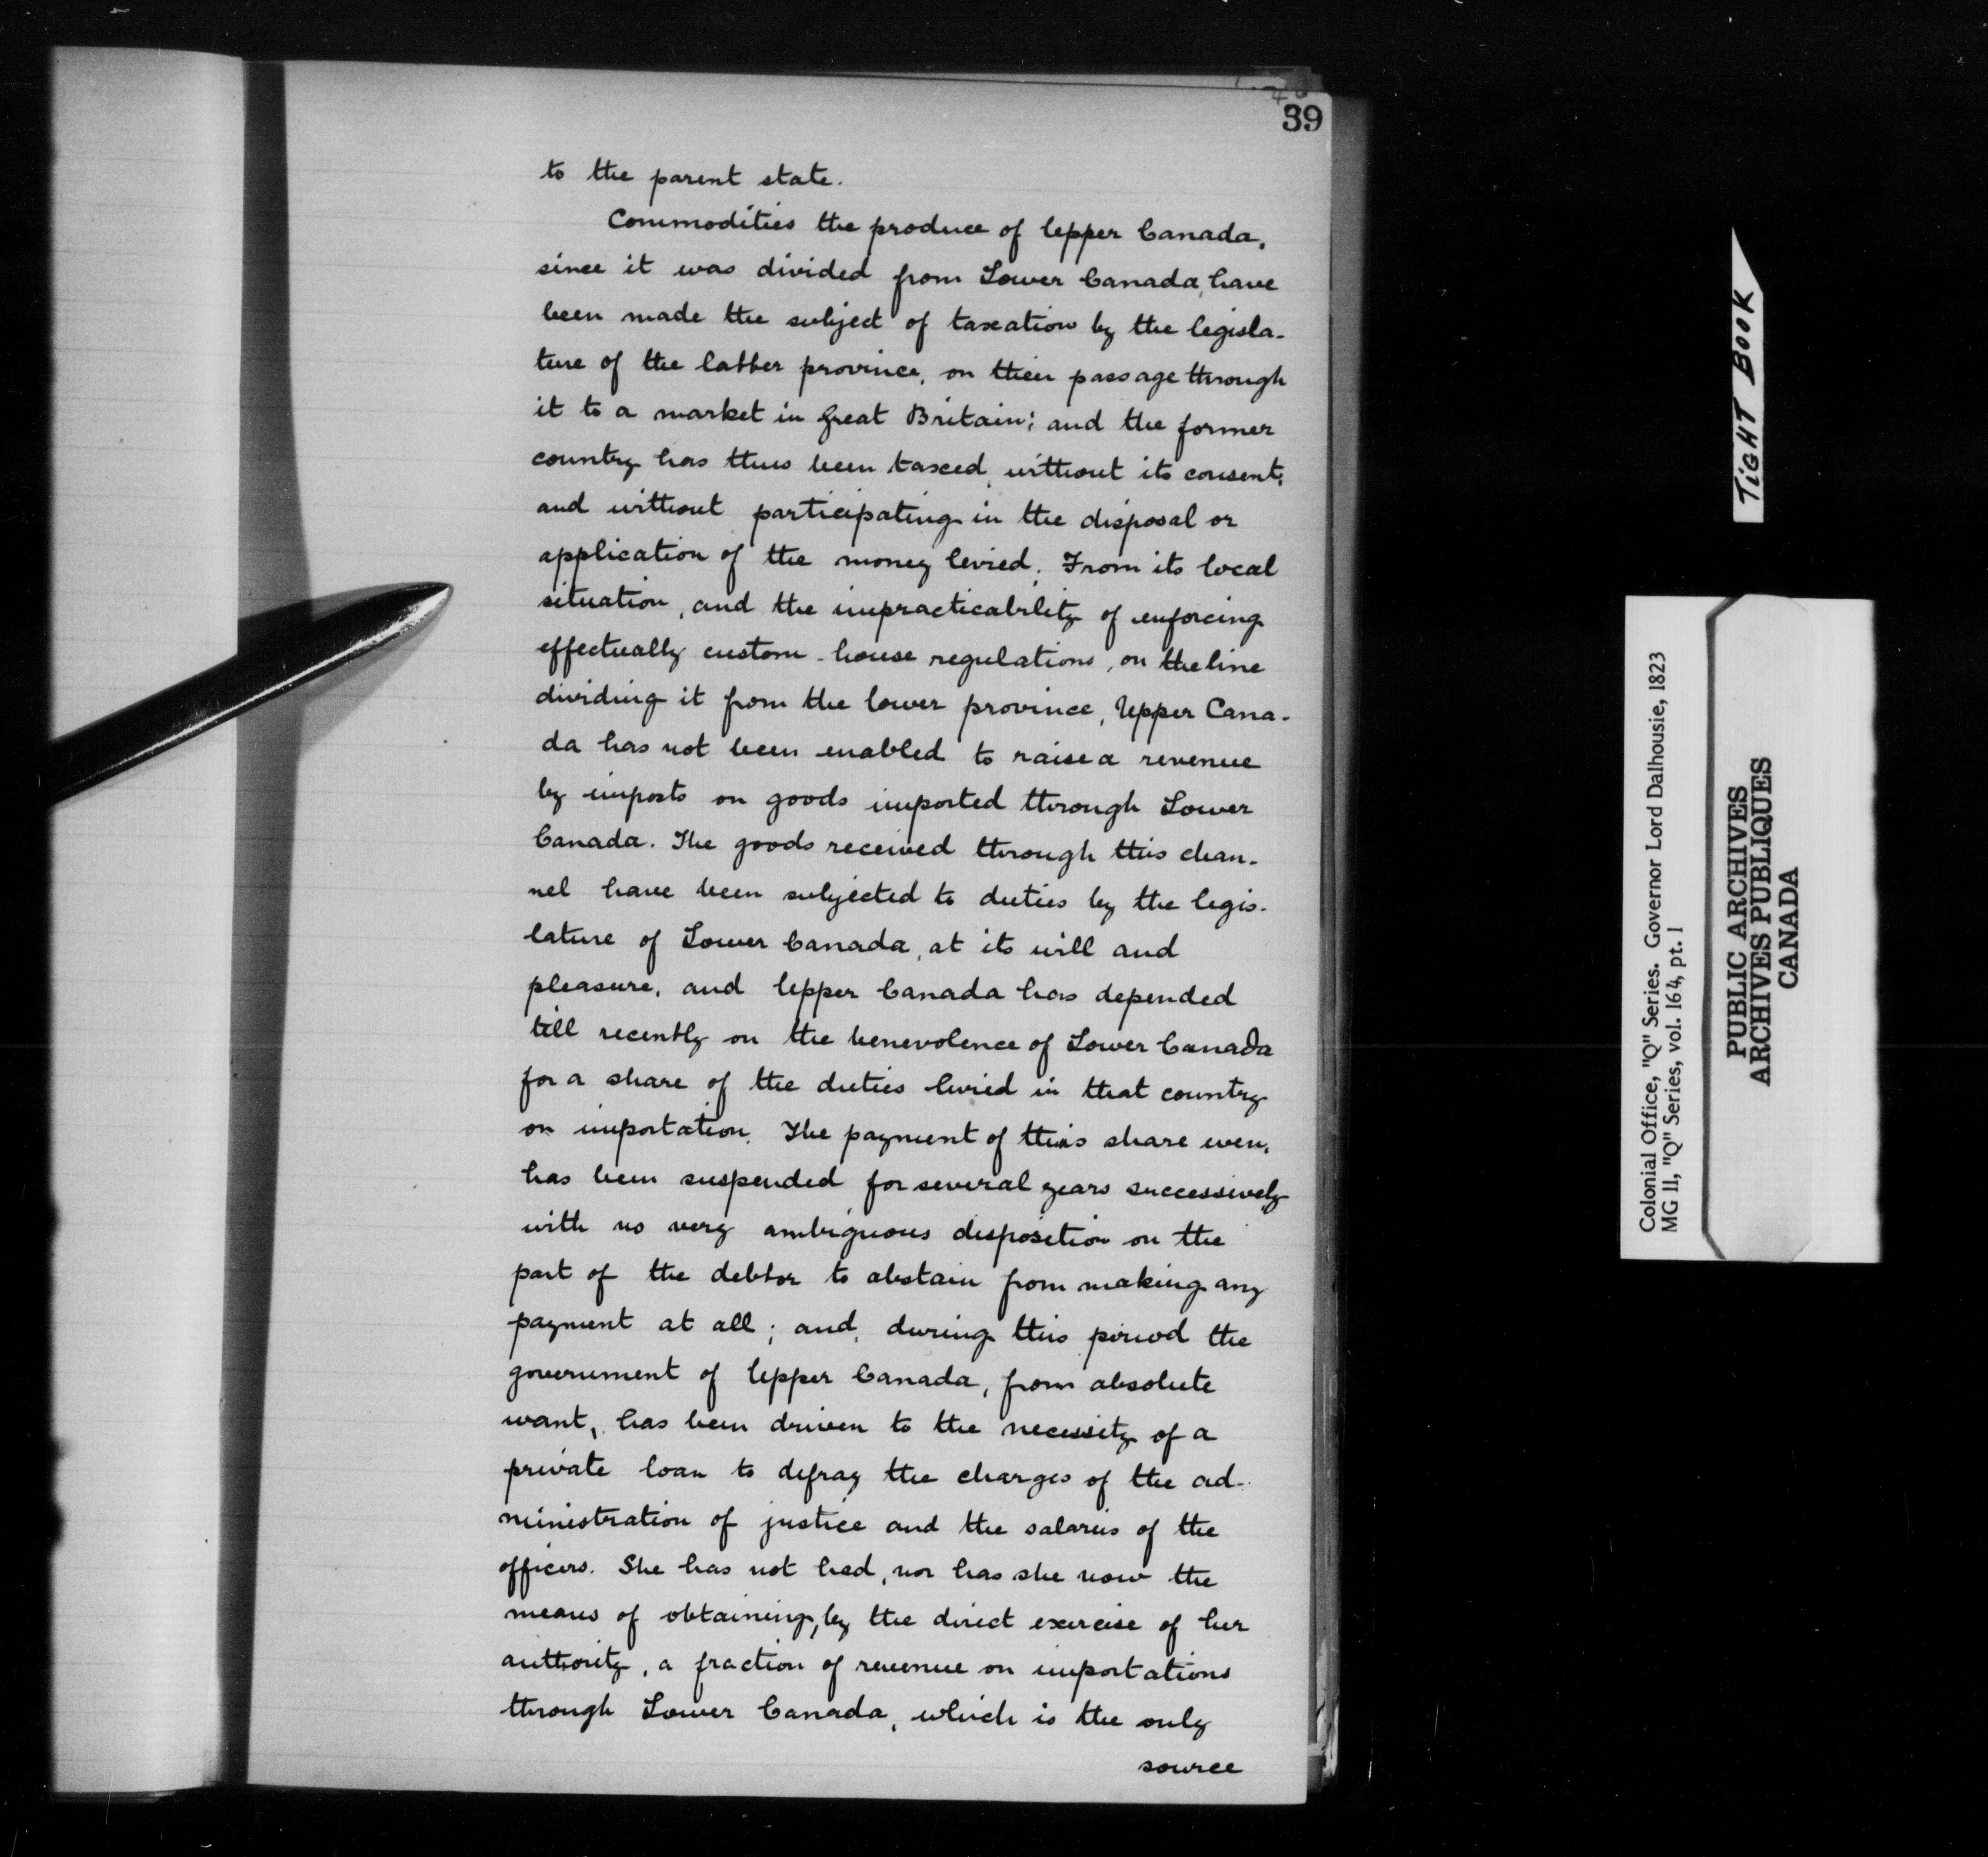 39
to the parent state.
Commodities the produce of Upper Canada,
since it was divided from Lower Canada, have
been made the subject of taxation by the legisla-
ture of the latter province, on their passage through
it to a market in Great Britain; and the former
country has thus been taxed, without its consent,
and without participating in the disposal or
application of the money levied. From its local
situation, and the impracticability of enforcing
effectually custom-house regulations, on the line
dividing it from the lower province, Upper Cana-
da has not been enabled to raise a revenue
by imposts on goods imported through Lower
Canada. The goods received through this chan-
nel have been subjected to duties by the legis-
lature of Lower Canada, at its will and
pleasure, and Upper Canada has depended
till recently on the benevolence of Lower Canada
for a share of the duties levied in that country
on importation. The payment of this share even,
has been suspended for several years successively,
with no very ambiguous disposition on the
part of the debtor to abstain from making any
payment at all; and, during this period the
government of Upper Canada, from absolute
want, has been driven to the necessity of a
private loan to defray the charges of the ad-
ministration of justice and the salaries of the
officers. She has not had, nor has she now the
means of obtaining, by the direct exercise of her
authority, a fraction of revenue on importations
through Lower Canada, which is the only
source
TIGHT BOOK
Colonial Office, "Q" Series. Governor Lord Dalhousie, 1823
MG 11, "Q" Series, vol. 164, pt. 1
PUBLIC ARCHIVES
ARCHIVES PUBLIQUES
CANADA